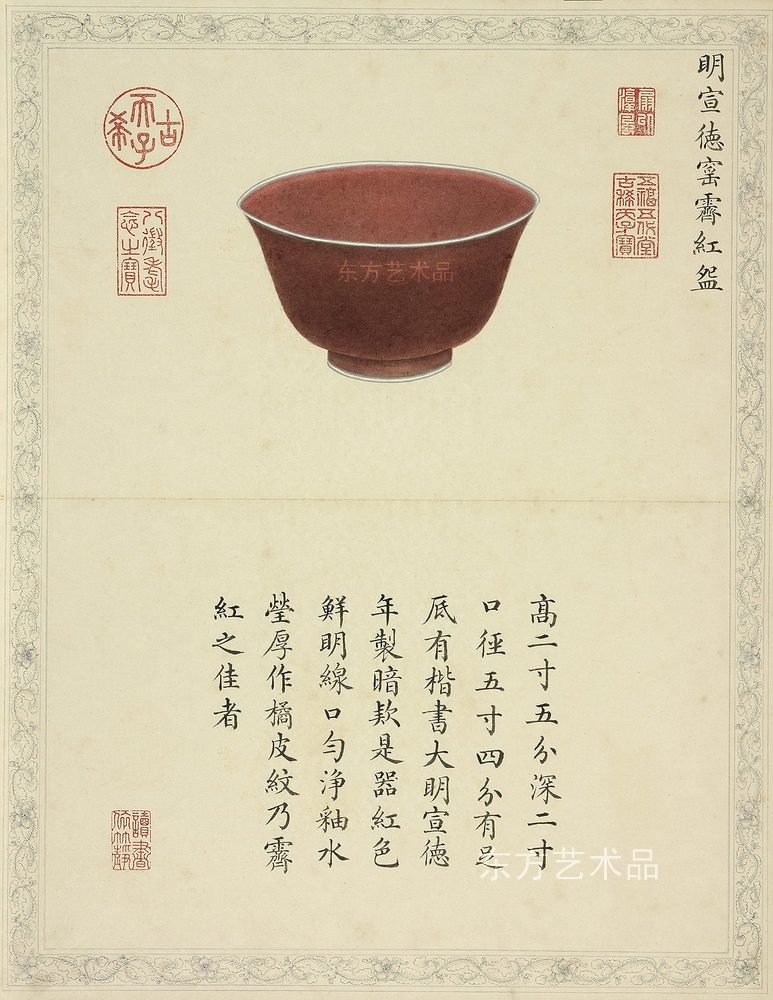 明宣德窰霽紅盌
五福五代堂
古稀天子寶
古稀天子
八徵耄
念之寶
东方艺术品
髙二寸五分深二寸
口徑五寸四分有足
底有楷書大明宣德
年製暗欵是器紅色
鮮明線口勻淨釉水
瑩厚作橘皮紋乃霽
紅之佳者
东方艺术品